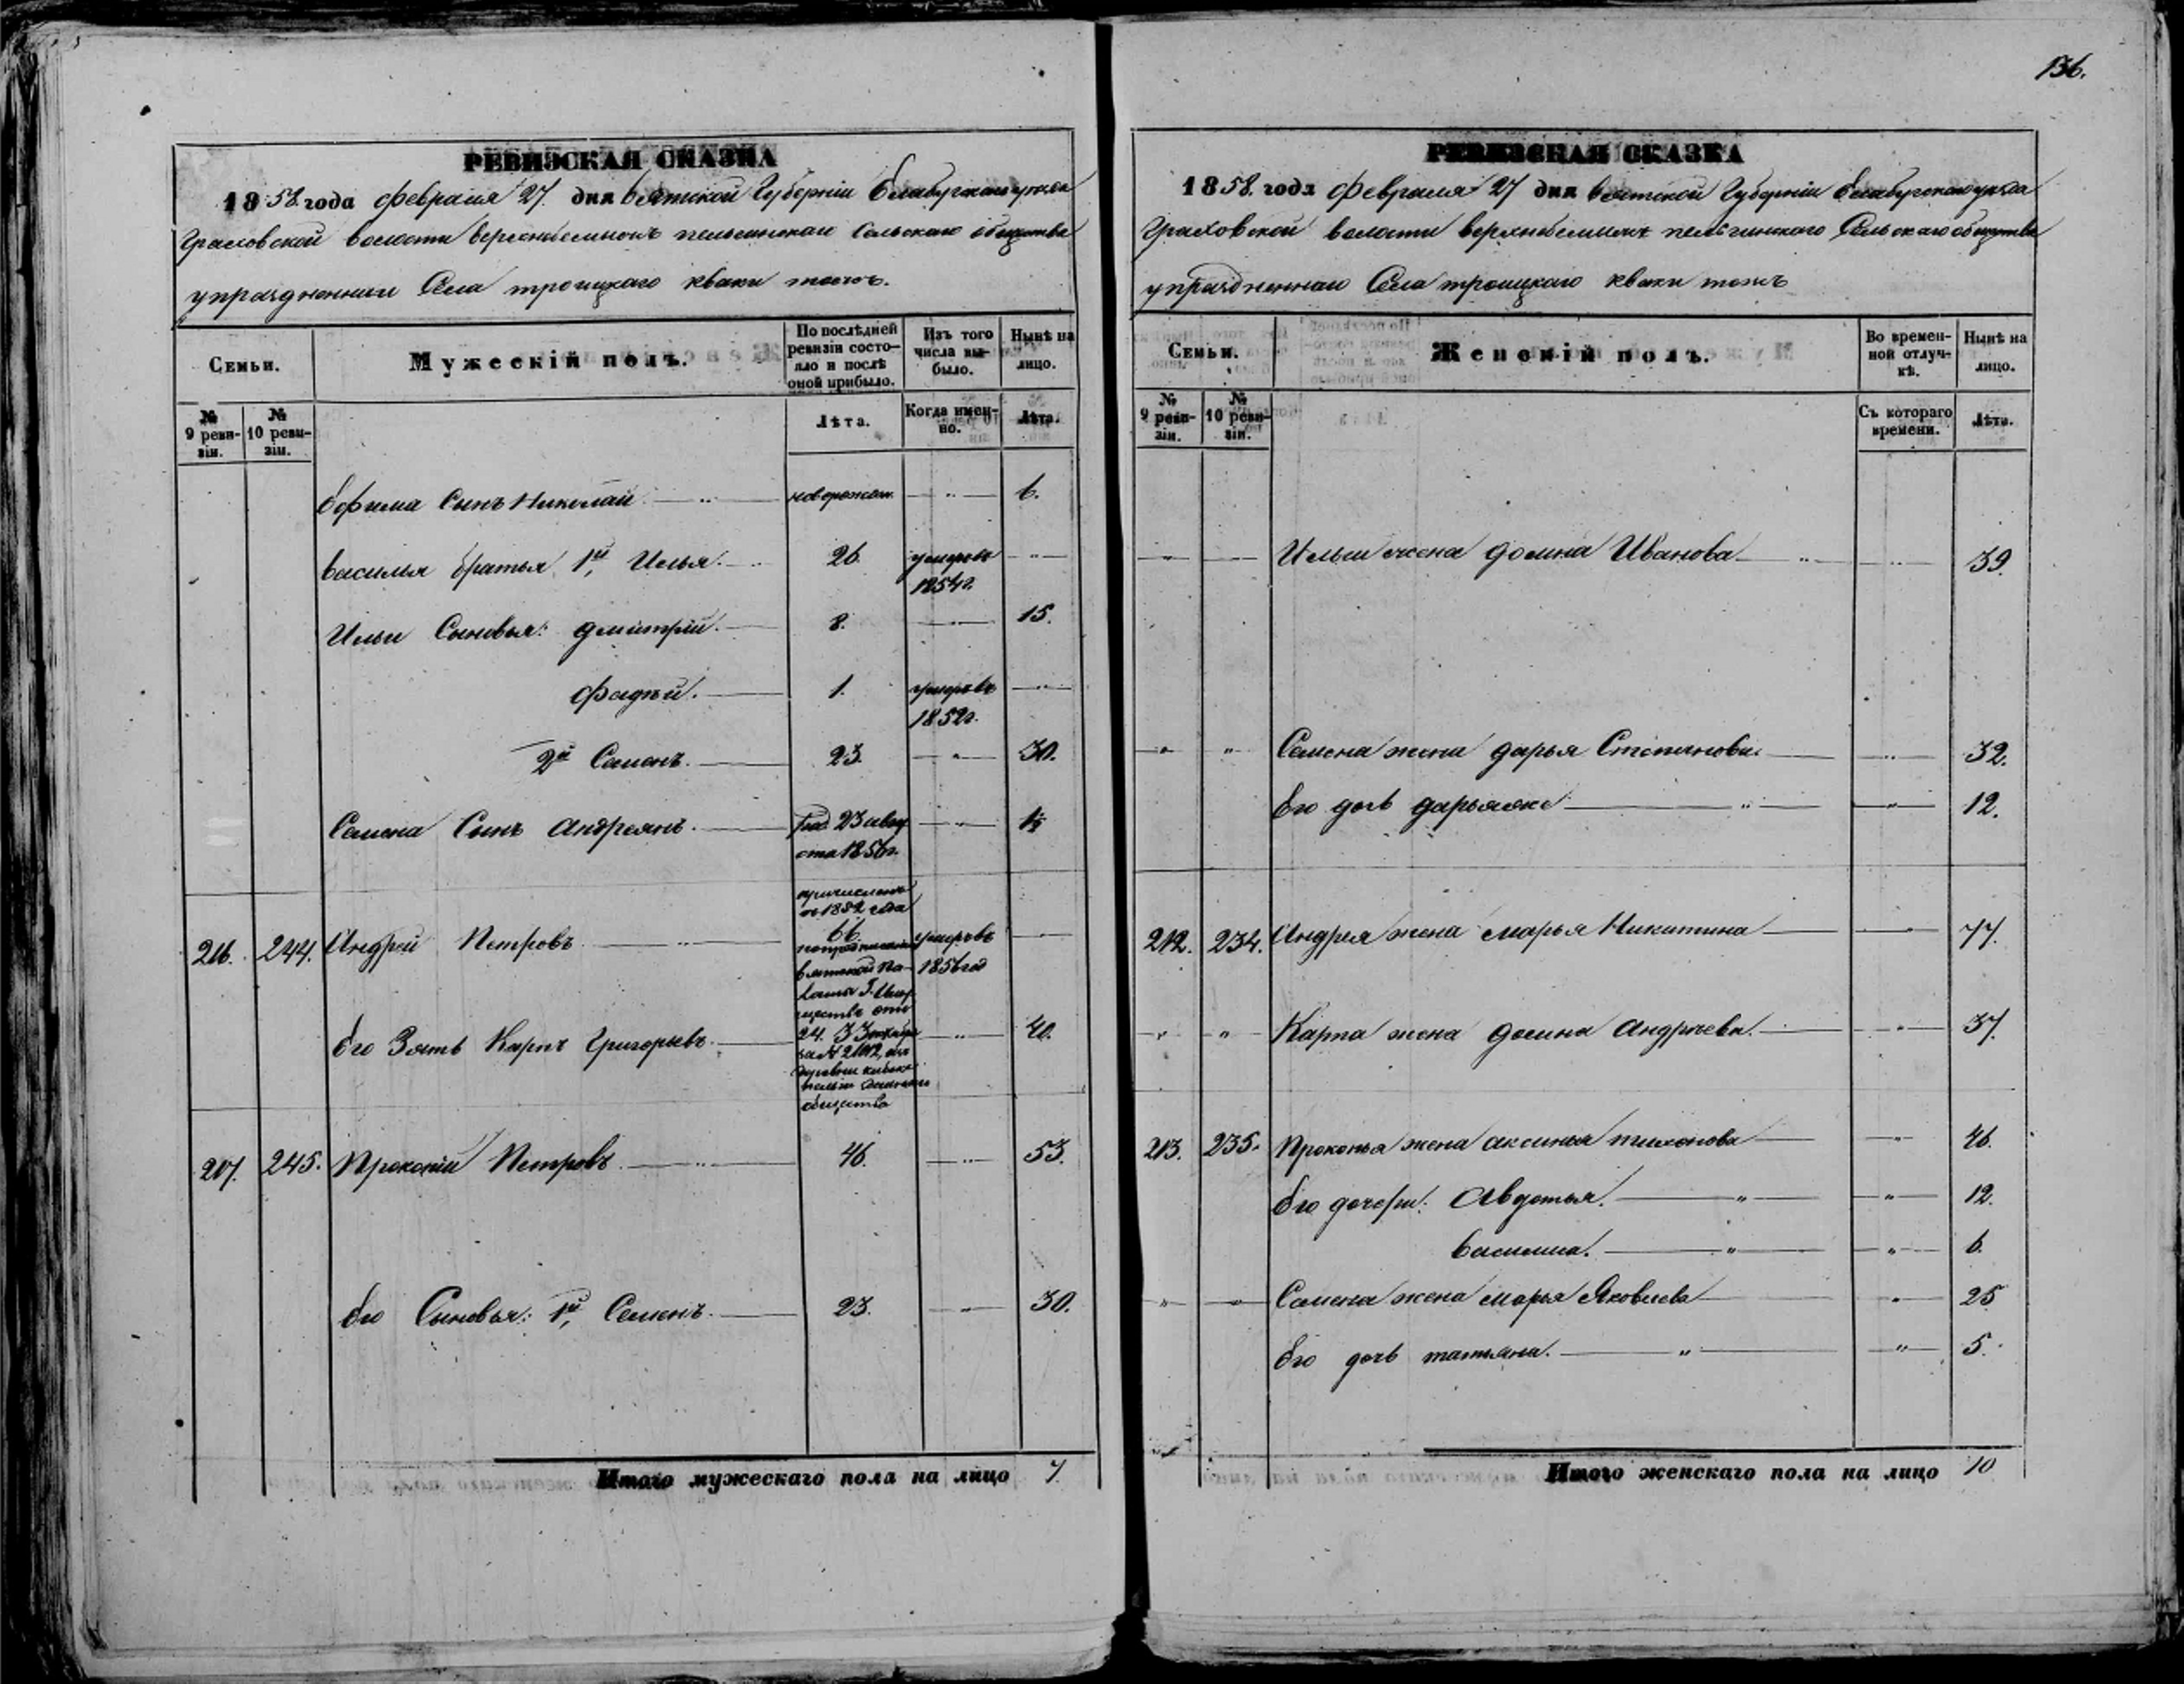 136.
РЕВИЗСКАЯ СКАЗКА
1858. года февраля 27. дня Вятской Губерніи Елабугскаго уезда
Граховской волости сельскаго общества
упраздненнаго Села троицкаго кваки тожъ.
Семьи.
Мужескій полъ.
По послѣдней ревизіи состояло и послѣ оной прибыло.
Изъ того числа выбыло.
Нынѣ на лицо.
№ 9 ревизіи.
№ 10 ревизіи.
Лѣта.
Когда именно.
Лѣта.
Ефима Сынъ Николай новорожден. 6.
Василья братья 1й, Илья. 26. умеръ
1854г.
Ильи Сыновья: Дмитрій. 8. 15.
Фадѣй. 1. умеръ
1852г.
2й Семенъ. 23. 30.
Семена Сынъ Андреянъ. 23 авгу 1½
ста 1856г.
причисленъ
1852 года
216. 244. Андрей Петровъ 66. умеръ
1856 год
Его Зять Карпъ Григорьевъ 40.
общества
217. 245. Прокопій Петровъ. 46. 53.
Его Сыновья: 1й, Семенъ. 23. 30.
Итого мужескаго пола на лицо 7.
РЕВИЗСКАЯ СКАЗКА
1858. года февраля 27 дня Вятской Губерніи Елабугскаго уезда
Граховской волости Сельскаго общества
упраздненнаго Села троицкаго кваки тожъ
Семьи.
Женскій полъ.
Во временной отлучкѣ.
Нынѣ на лицо.
№ 9 ревизіи.
№ 10 ревизіи.
Съ котораго времени.
Лѣта.
Ильи жена домна Иванова 39.
Семена жена дарья Степанова. 32.
Его дочь дарья же 12.
212. 234. Андрея жена марья Никитина 77.
Карпа жена домна андреева. 37.
213. 235. Прокопья жена аксинья тихонова 46.
Его дочери: Авдотья. 12.
Василиса. 6.
Семена жена марья Яковлева 25
Его дочь татьяна. 5.
Итого женскаго пола на лицо 10